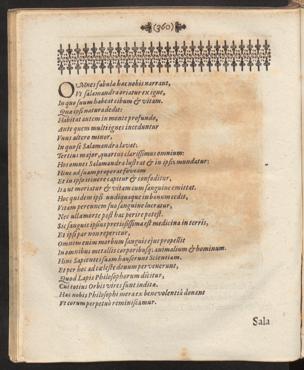 (360)
OMnes fabula hæc nobis narrant,
Vt salamandra oriatur ex igne,
In quo suum habeat cibum & vitam.
Quæ ipsi natura dedit:
Habitat autem in monte profundo,
Ante quem multi ignes incenduntur
Vnus altero minor,
In quo se Salamandra lavat.
Tertius major, quartus clarissimus omnium:
Hos omnes Salamandra lustrat & in ipsis mundatur:
Hinc ad suam properat foveam
Et in ipso itinere capitur & confoditur,
Ita ut moriatur & vitam cum sanguine emittat.
Hoc quidem ipsi undiquaque in bonum cedit,
Vitam perennem suo sanguine lucratur,
Nec ulla morte post hac perire potest.
Sic sanguis ipsius pretiosissima est medicina in terris,
Et ipsi par non reperitur,
Omnem enim morbum sanguis ejus propellit
In omnibus metallis corporibusq; animalium & hominum.
Hinc Sapientes suam hauserunt Scientiam.
Et per hoc ad cæleste donum pervenerunt,
Quod Lapis Philosophorum dicitur,
Cui totius Orbis vires sunt inditæ.
Hæc nobis Philosophi mera ex benevolentia donent
Vt eorum perpetuò reminiscamur.
Sala